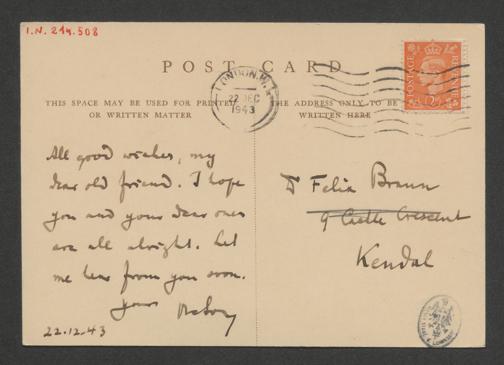 I.N. 244.508
POST CARD
THIS SPACE MAY BE USED FOR PRINTED
OR WRITTEN MATTER
THE ADDRESS ONLY TO BE
WRITTEN HERE
LONDON.W.1
22 DEC
1943
POSTAGE
REVENUE
All good wishes, my
dear old friend. I hope
you and your dear ones
are all alright. Let
me hear from you soon.
yours
22.12.43
D Felix Braun
9 Castle Crescent
Kendal